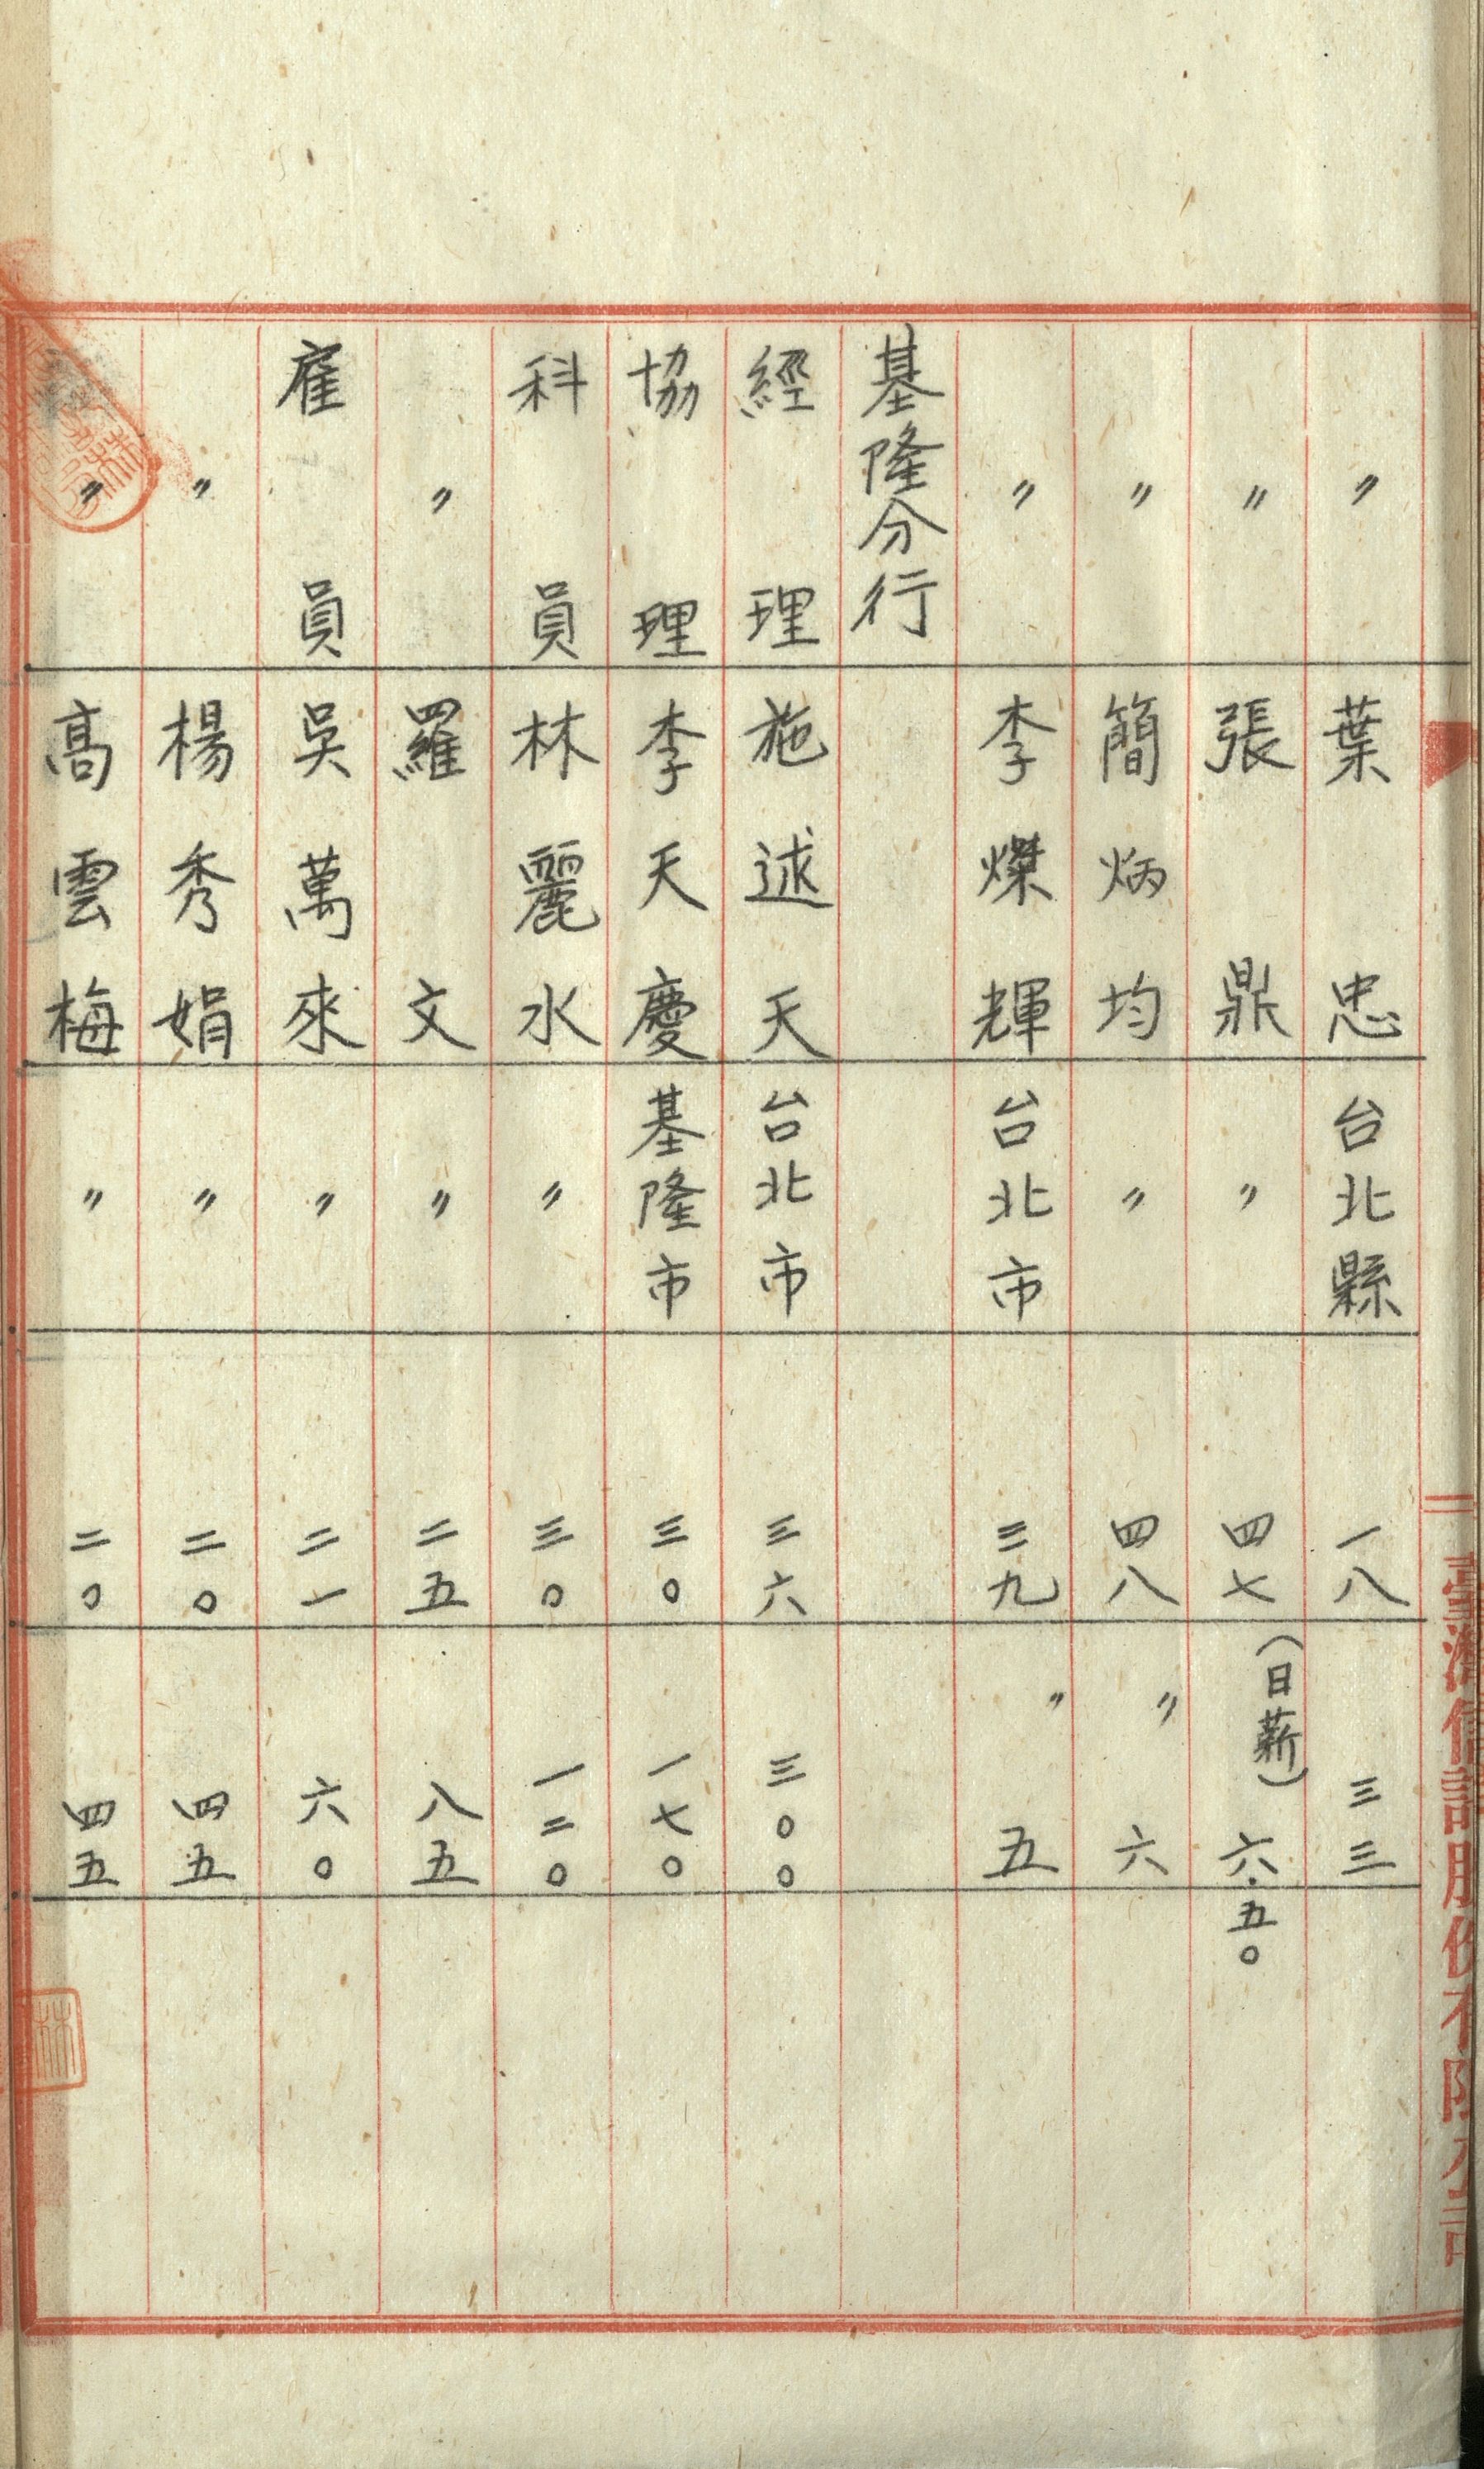 〃 葉忠 台北縣 一八 三三
〃 張鼎 〃 四七 (日薪) 六.五〇
〃 簡炳均 〃 四八 〃 六
〃 李燦輝 台北市 三九 〃 五
基隆分行
經理 施述天 台北市 三六 三〇〇
協理 李天慶 基隆市 三〇 一七〇
科員 林麗水 〃 三〇 一二〇
〃 羅文 〃 二五 八五
雇員 吳萬來 〃 二一 六〇
〃 楊秀娟 〃 二〇 四五
〃 高雲梅 〃 二〇 四五